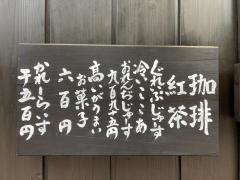 珈琲
紅茶
ぐれーぷじゅーす
冷こここあ
おれんじじゅーす
九百九十五円
高いがうまい
お菓子
六百円
かれーらいす
千五百円